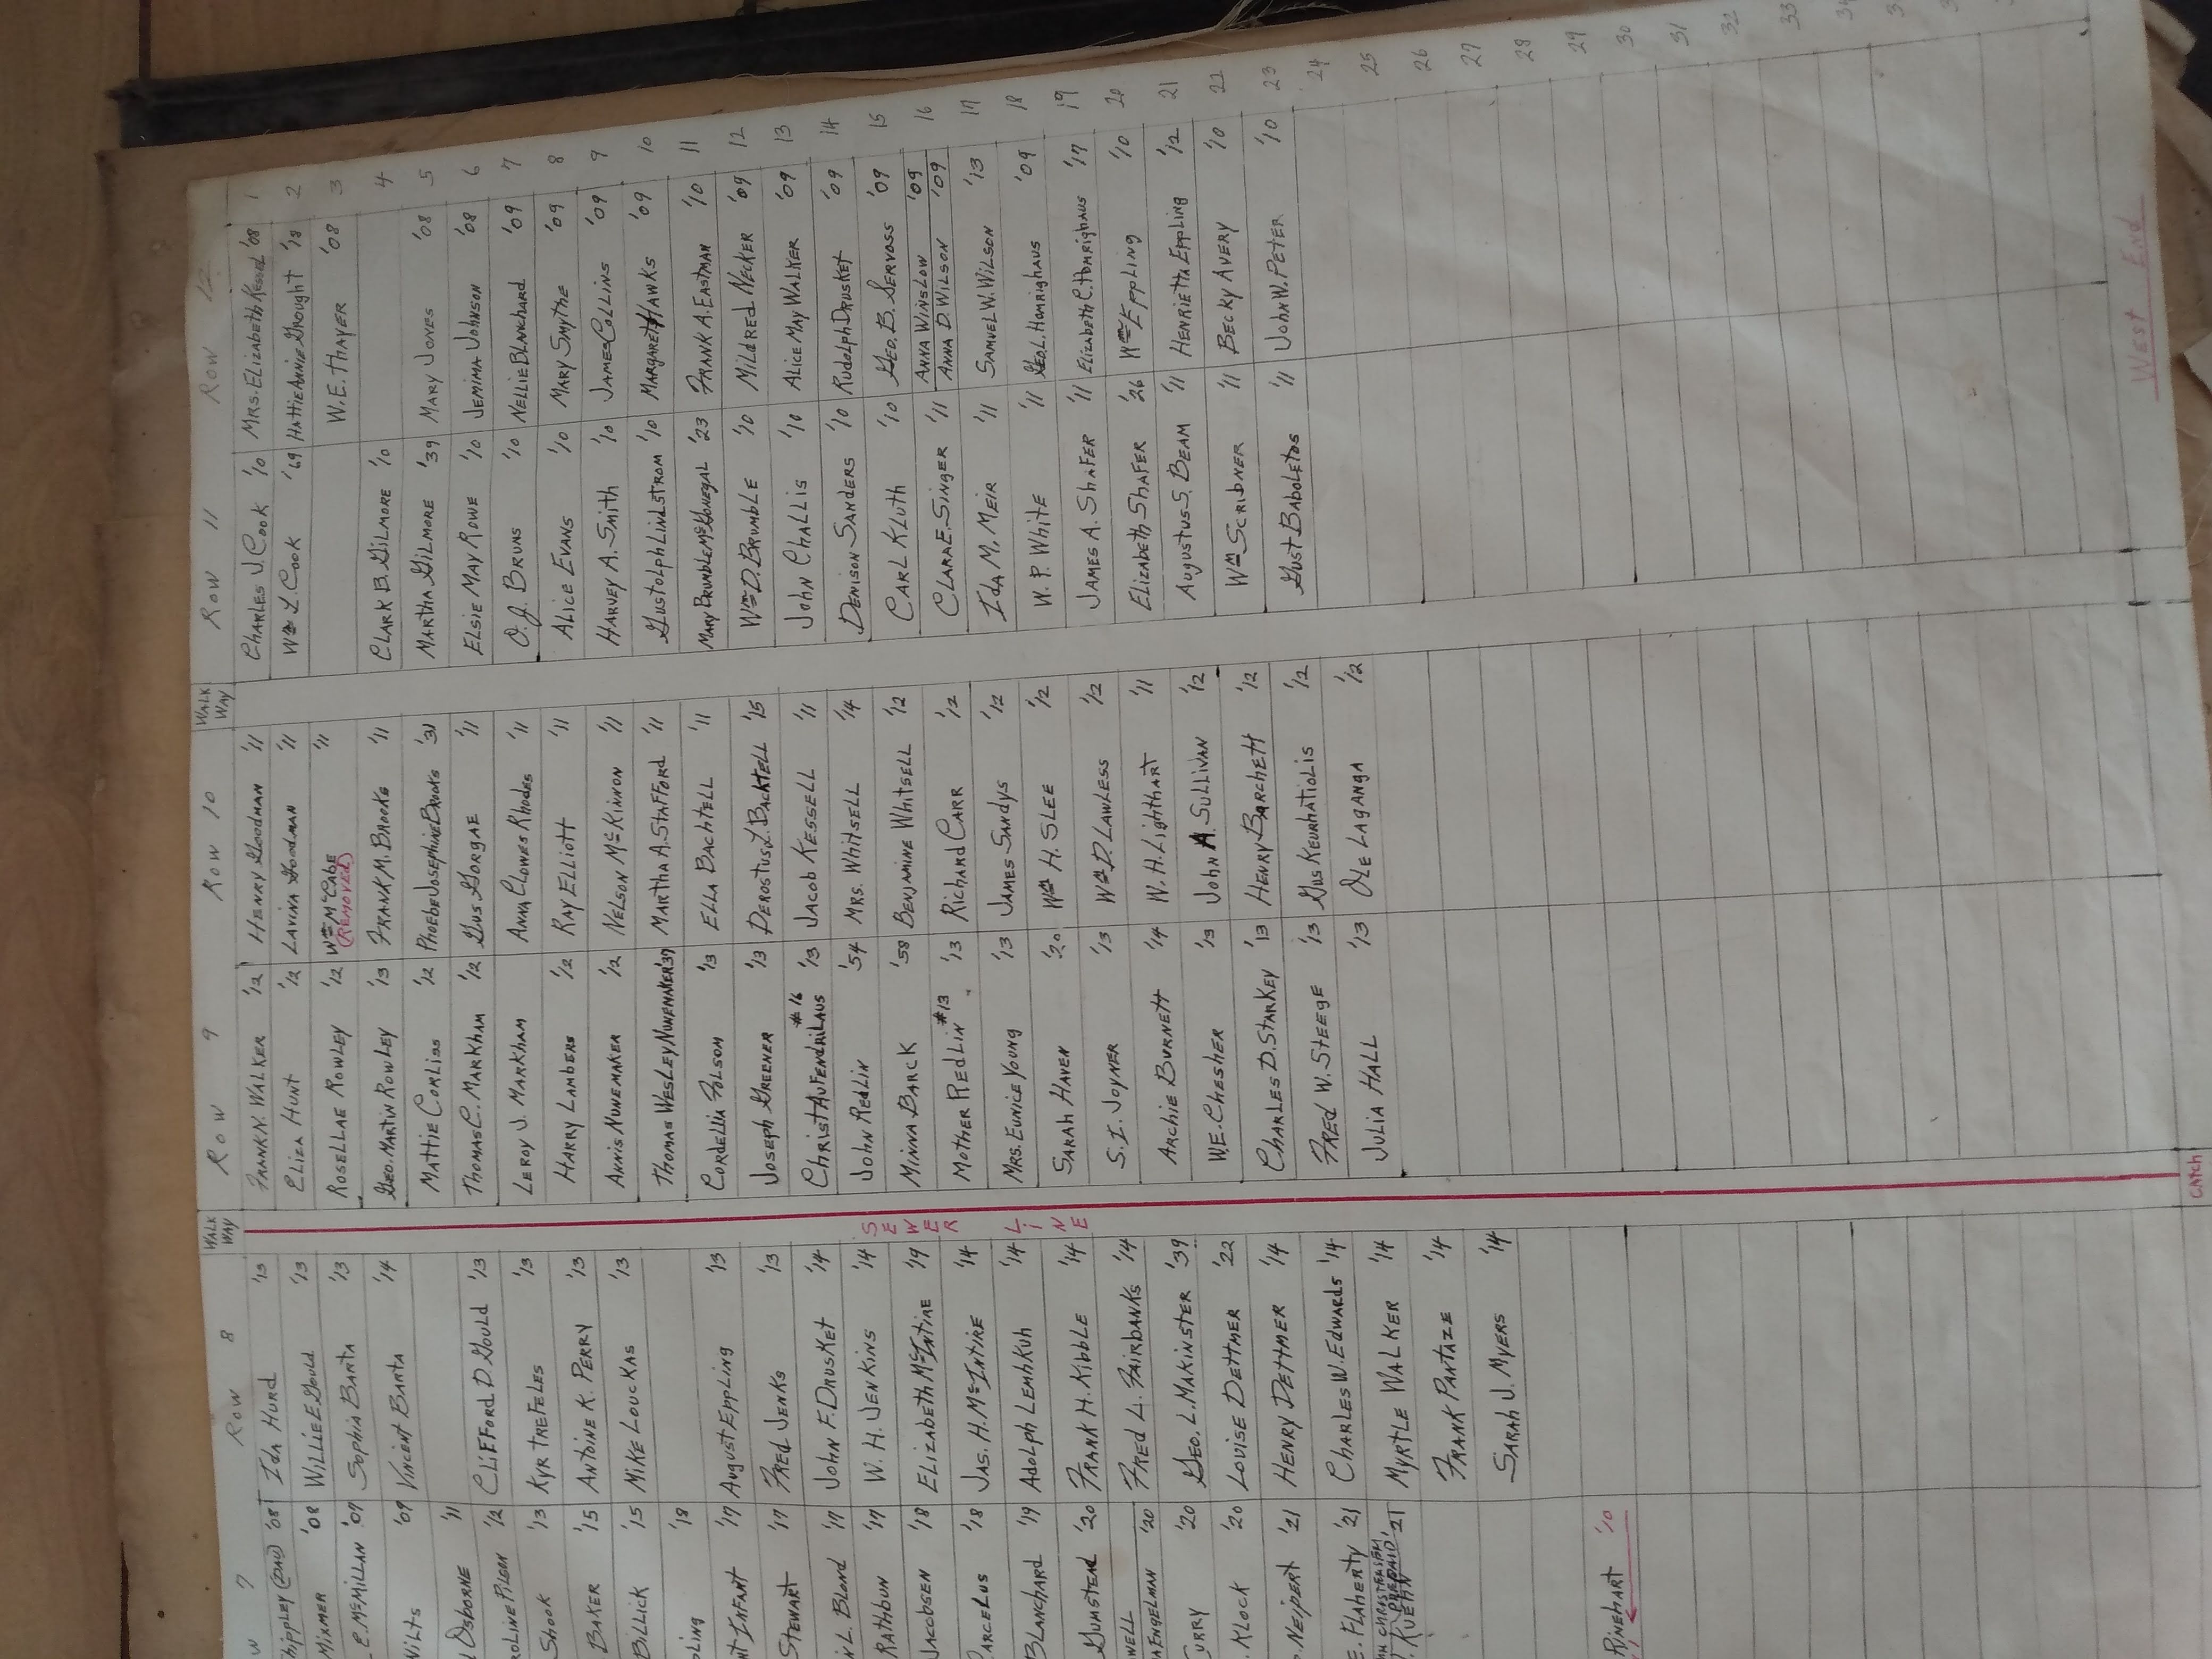 Row 7 Row 8 WALK WAY Row 9 Row 10 WALK WAY Row 11 Row 12
'08 Ida Hurd '13 FRANK N. WALKER '12 HENRY Goodman '11 Charles J. Cook '10 MRS. Elizabeth Kessel '08 1
Mixmer '08 Willie E Gould '13 Eliza Hunt '12 LAVINA Goodman '11 Wm L. Cook '69 Hattie Annie Grought '18 2
E. McMillan '07 Sophia Barta '13 Rosellae Rowley '12 Wm McCabe '11 W.E. Thayer '08 3
(REMOVED)
Wilts '09 Vincent Barta '14 Geo. Martin Rowley '13 FRANK M. Brooks '11 CLARK B. Gilmore '10 4
Osborne '11 Mattie Corliss '12 Phoebe Josephine Brooks '31 Martha Gilmore '39 MARY JONES '08 5
Pilson '12 Clifford D. Gould '13 Thomas C. Markham '12 Gus Gorgae '11 Elsie May Rowe '10 Jemima Johnson '08 6
Shook '13 Kyr Trefeles '13 Leroy J. Markham Anna Clowes Rhodes '11 O. J. Bruns '10 Nellie Blanchard '09 7
Baker '15 Antoine K. Perry '13 Harry Lambers '12 Ray Elliott '11 Alice Evans '10 Mary Smythe '09 8
Billick '15 Mike Louckas '13 Annis Nunemaker '12 Nelson McKinnon '11 Harvey A. Smith '10 James Collins '09 9
'18 Thomas Wesley Nunemaker '39 Martha A. Stafford '11 Gustolph Lindstrom '10 Margaret Hawks '09 10
Infant '17 August Eppling '13 Cordelia Folsom '13 Ella Bachtell '11 Mary Brumble McGonegal '23 Frank A. Eastman '10 11
Stewart '17 Fred Jenks '13 Joseph Greener '13 Derostus L. Backtell '15 Wm D. Brumble '10 Mildred Necker '09 12
L. Blond '17 John F. Drusket '14 Christ Aufendrilaus #16 '13 Jacob Kessell '11 John Challis '10 Alice May Walker '09 13
Rathbun '17 W. H. Jenkins '14 John Redlin '54 Mrs. Whitsell '14 Denison Sanders '10 Rudolph Drusket '09 14
Jacobsen '18 Elizabeth McIntire '19 Minna Barck '58 Benjamine Whitsell '12 Carl Kluth '10 Geo. B. Servoss '09 15
Parcelus '18 Jas. H. McIntire '14 Mother Redlin #13 '13 Richard Carr '12 Clara E. Singer '11 Anna Winslow '09 16
Anna D. Wilson '09
Blanchard '19 Adolph Lemhkuh '14 Mrs. Eunice Young '13 James Sandys '12 Ida M. Meir '11 Samuel W. Wilson '13 17
Gumstead '20 Frank H. Kibble '14 Sarah Haven '20 Wm H. Slee '12 W. P. White '11 Geo L. Homrighaus '09 18
Engelman '20 Fred L. Fairbanks '14 S. I. Joyner '13 Wm D. Lawless '12 James A. Shafer '11 Elizabeth C. Homrighaus '17 19
Curry '20 Geo. L. Makinster '39 Archie Burnett '14 W. H. Lighthart '11 Elizabeth Shafer '26 Wm Eppling '10 20
Klock '20 Louise Dettmer '22 W.E. Chesher '13 John A. Sullivan '12 Augustus S. Beam '11 Henrietta Eppling '12 21
Neipert '21 Henry Dettmer '14 Charles D. Starkey '13 Henry Barchett '12 Wm Scribner '11 Becky Avery '10 22
E. Flaherty '21 Charles W. Edwards '14 Fred W. Steege '13 Gus Keurhatiolis '12 Gust Baboletos '11 John W. Peter '10 23
Kuehn '21 Myrtle Walker '14 Julia Hall '13 Ole Laganga '12 24
Frank Pantaze '14 25
Sarah J. Myers '14 26
27
Rinehart '10 28
29
30
31
32
33
SEWER LINE
CATCH
West End